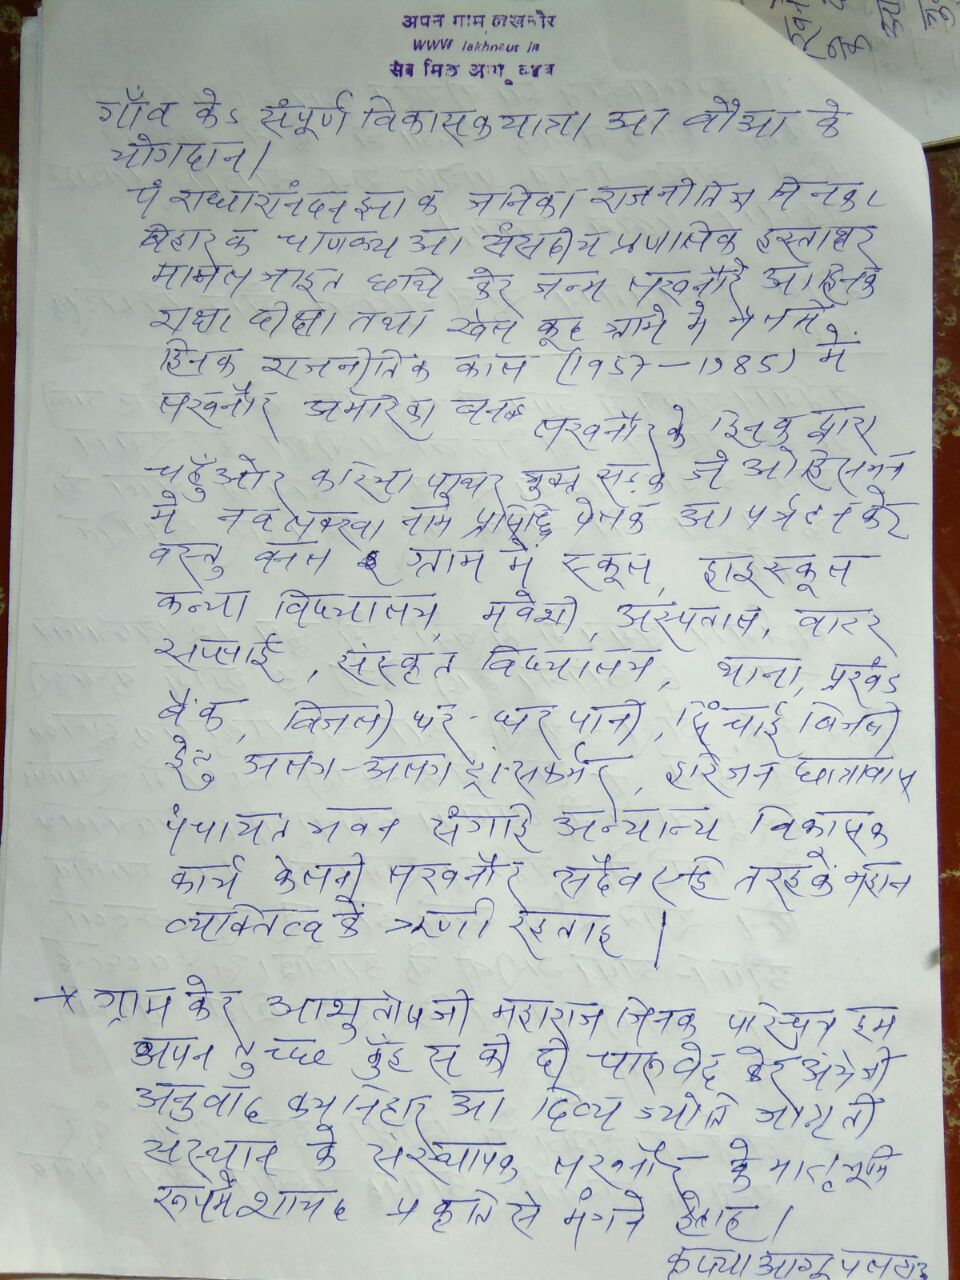 अपन गाम लखनौर
www lakhnaur in
सब मिल आगू बढब
गाँव केऽ संपूर्ण विकासक यात्रा आ बौआ के
योगदान।
पं राधानंदन झा क जनिका राजनीतिज्ञ में नका
बिहारक चाणक्य आ संसदीय प्रणालिक हस्ताक्षर
मानल जाइत छथि केर जन्म लखनौर आ हिनक
शिक्षा दीक्षा तथा खेल कूद ग्रामे मे भेलन्हि।
हिनक राजनीतिक काल (1957-1985) में
लखनौर अमेरिका बनल लखनौर के हिनक द्वारा
चहुँओर करिया पाथर युक्त सड़क जे ओहि समय
में नवलक्खा नाम प्रसिद्धि भेलक आ पर्यटन केर
वस्तु बनल ग्राम में स्कूल, हाइस्कूल
कन्या विद्यालय, मवेशी, अस्पताल, वाटर
सप्लाई, संस्कृत विद्यालय, थाना, प्रखंड
बैंक, बिजली घर-घर पानी, सिंचाई बिजली
हेतु अलग-अलग ट्रांसफर्मर, हरिजन छात्रावास
पंचायत भवन संगहि अन्यान्य विकासक
कार्य केलनी लखनौर सदैव एहि तरहकें महान
व्यक्तित्व कें ऋणी रहताह।
* ग्राम केर आशुतोषजी महाराज जिनक परिचय हम
अपन तुच्छ मुँह स की दी चारू वेद केर अंग्रेजी
अनुवाद कयनिहार आ दिव्य ज्योति जागृती
संस्थान के संस्थापक लखनौर के मातृभूमि
रूपमें शायद प्रकृति से मंगने हेताह।
कृपया आगू पलटाउ